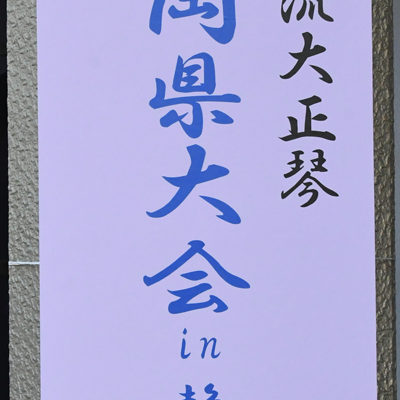 流大正琴
岡県大会in静